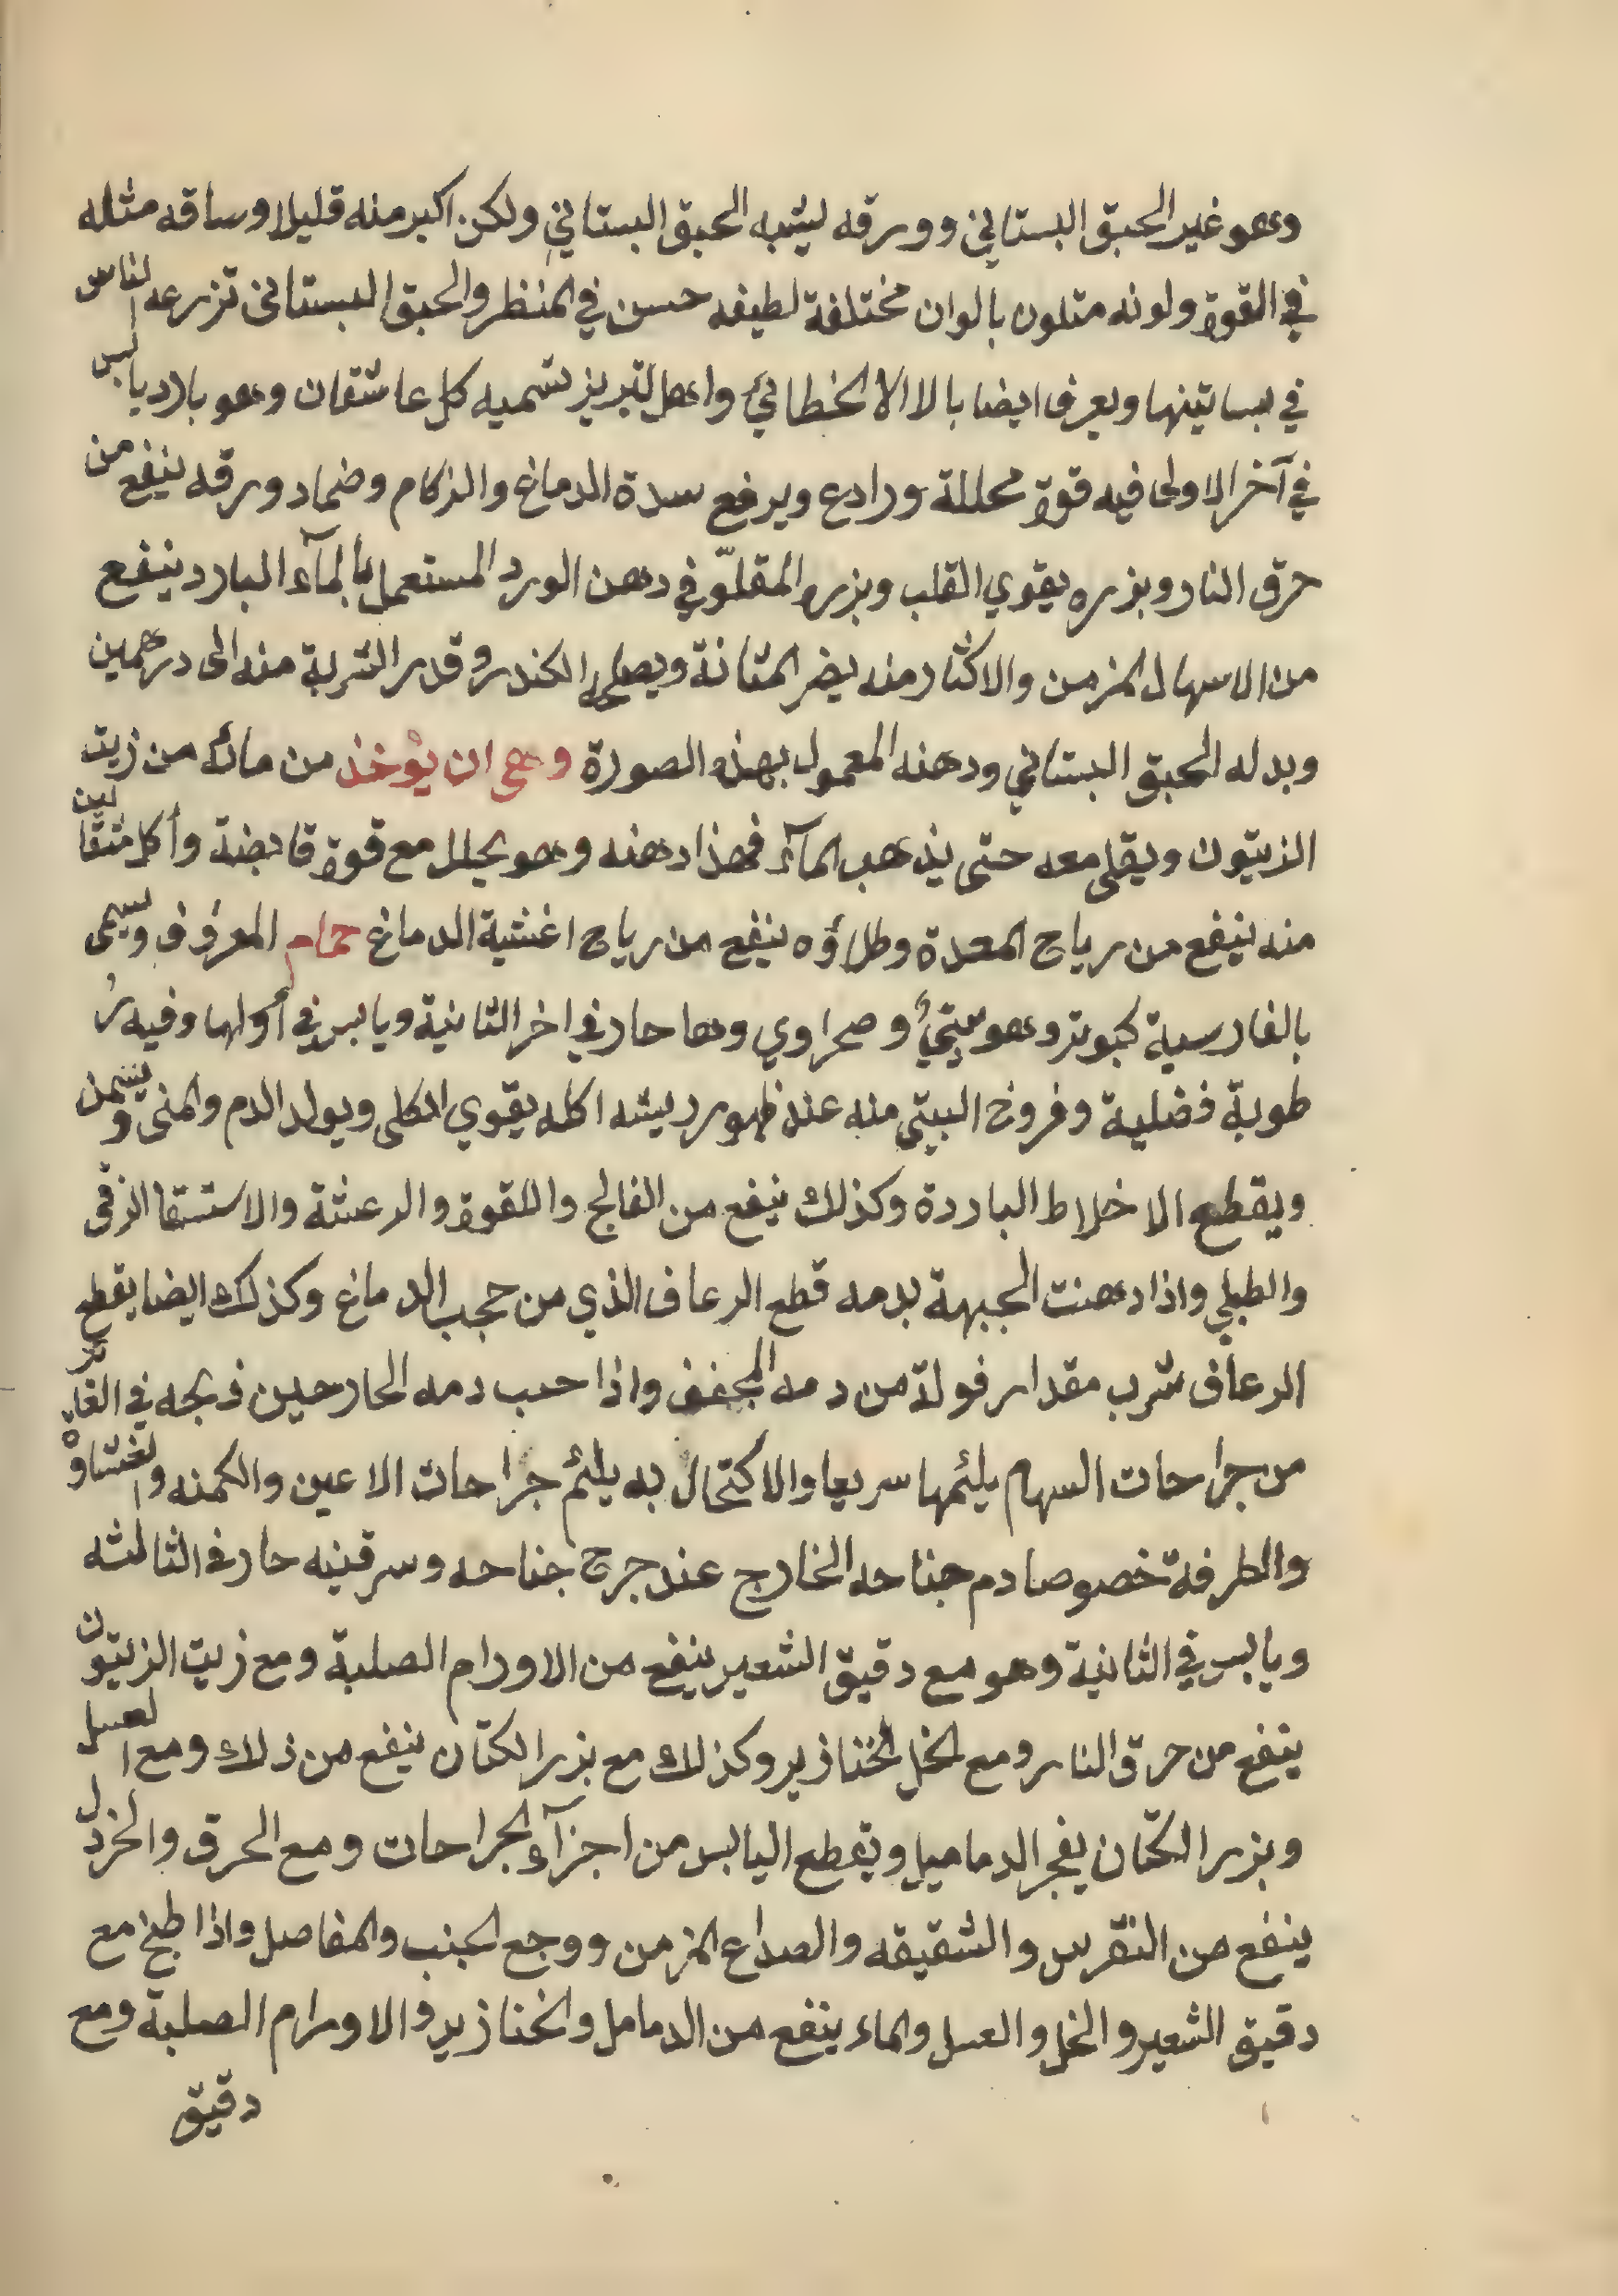 وهو غير الحبق البستاني وورقه يشبه الحبق البستاني ولكن اكبر منه قليلا وساقه مثله
في القوة ولونه متلون بالوان مختلفة لطيفه حسن في المنظر والحبق البستانى تزرعه الناس
في بساتينها ويعرف ايضا بالالالا الخطائي واهل تبريز تسميه كل عاشقان وهو بارد يابس
في آخر الاولى فيه قوة محللة ورادع ويرفع سدة الدماغ والزكام وضماد ورقه ينفع من
حرق النار وبزره يقوي القلب وبزره المقلوّ في دهن الورد المستعمل بالمآء البارد ينفع
من الاسهال المزمن والاكثار منه يضر المثانة ويصلحه الكندر وقدر الشربة منه الى درهمين
وبدله الحبق البستاني ودهنه المعمول بهذه الصورة وهي ان يؤخذ من مائه من زيت
الزيتون ويقلى معه حتى يذهب المآء فهذا دهنه وهو يحلل مع قوة قابضة وأكل مثقالين
منه ينفع من رياح المعدة وطلاؤه ينفع من رياح اغشية الدماغ حمام المعروف ويسمى
بالفارسية كبوتر وهو بيتيٌ وصحراوي وهما حار في اخر الثانية ويابس في أولها وفيه رُ
طوبة فضلية وفروخ البيتي منه عند ظهور ريشه اكله يقوي الكلى ويولد الدم والمنى ويسمن
ويقطع الاخلاط الباردة وكذلك ينفع من الفالج واللقوة والرعشة والاستسقا الزقى
والطبلي واذا دهنت الجبهة بدمه قطع الرعاف الذي من حجب الدماغ وكذلك ايضا يقطع
الرعاف شرب مقدار فولة من دمه المجفف واذا صب دمه الحار حين ذبحه في الغائر
من جراحات السهام يلئمها سريعا والاكتحال به يلئم جراحات الاعين والكمنه والغشاوة
والطرفة خصوصا دم جناحه الخارج عند جرح جناحه وسرقنيه حار في الثالثه
ويابس في الثانية وهو مع دقيق الشعير ينفع من الاورام الصلبة ومع زيت الزيتون
ينفع من حرق النار ومع الخل الخنازير وكذلك مع بزر الكتان ينفع من ذلك ومع العسل
وبزر الكتان يفجر الدماميل ويقطع اليابس من اجزآء الجراحات ومع الحرف والخردل
ينفع من النقرس والشقيقه والصداع المزمن ووجع الجنب والمفاصل واذا طبخ مع
دقيق الشعير والخل والعسل والماء ينفع من الدمامل والخنازير والاورام الصلبة ومع
دقيق